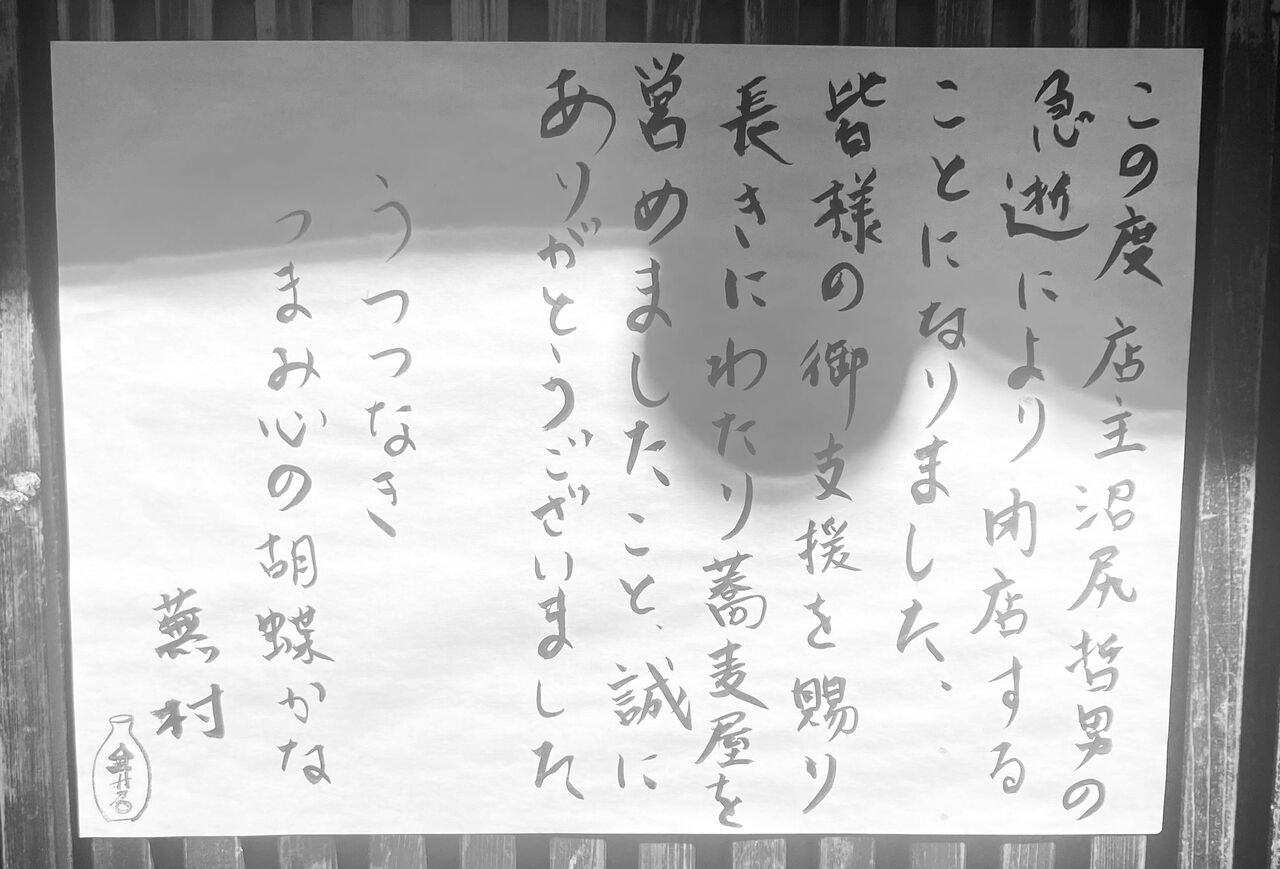 この度 店主 沼尻哲男の
急逝により閉店する
ことになりました、
皆様の御支援を賜り
長きにわたり蕎麦屋を
営めましたこと、誠に
ありがとうございました
うつつなき
つまみ心の胡蝶かな
蕪村